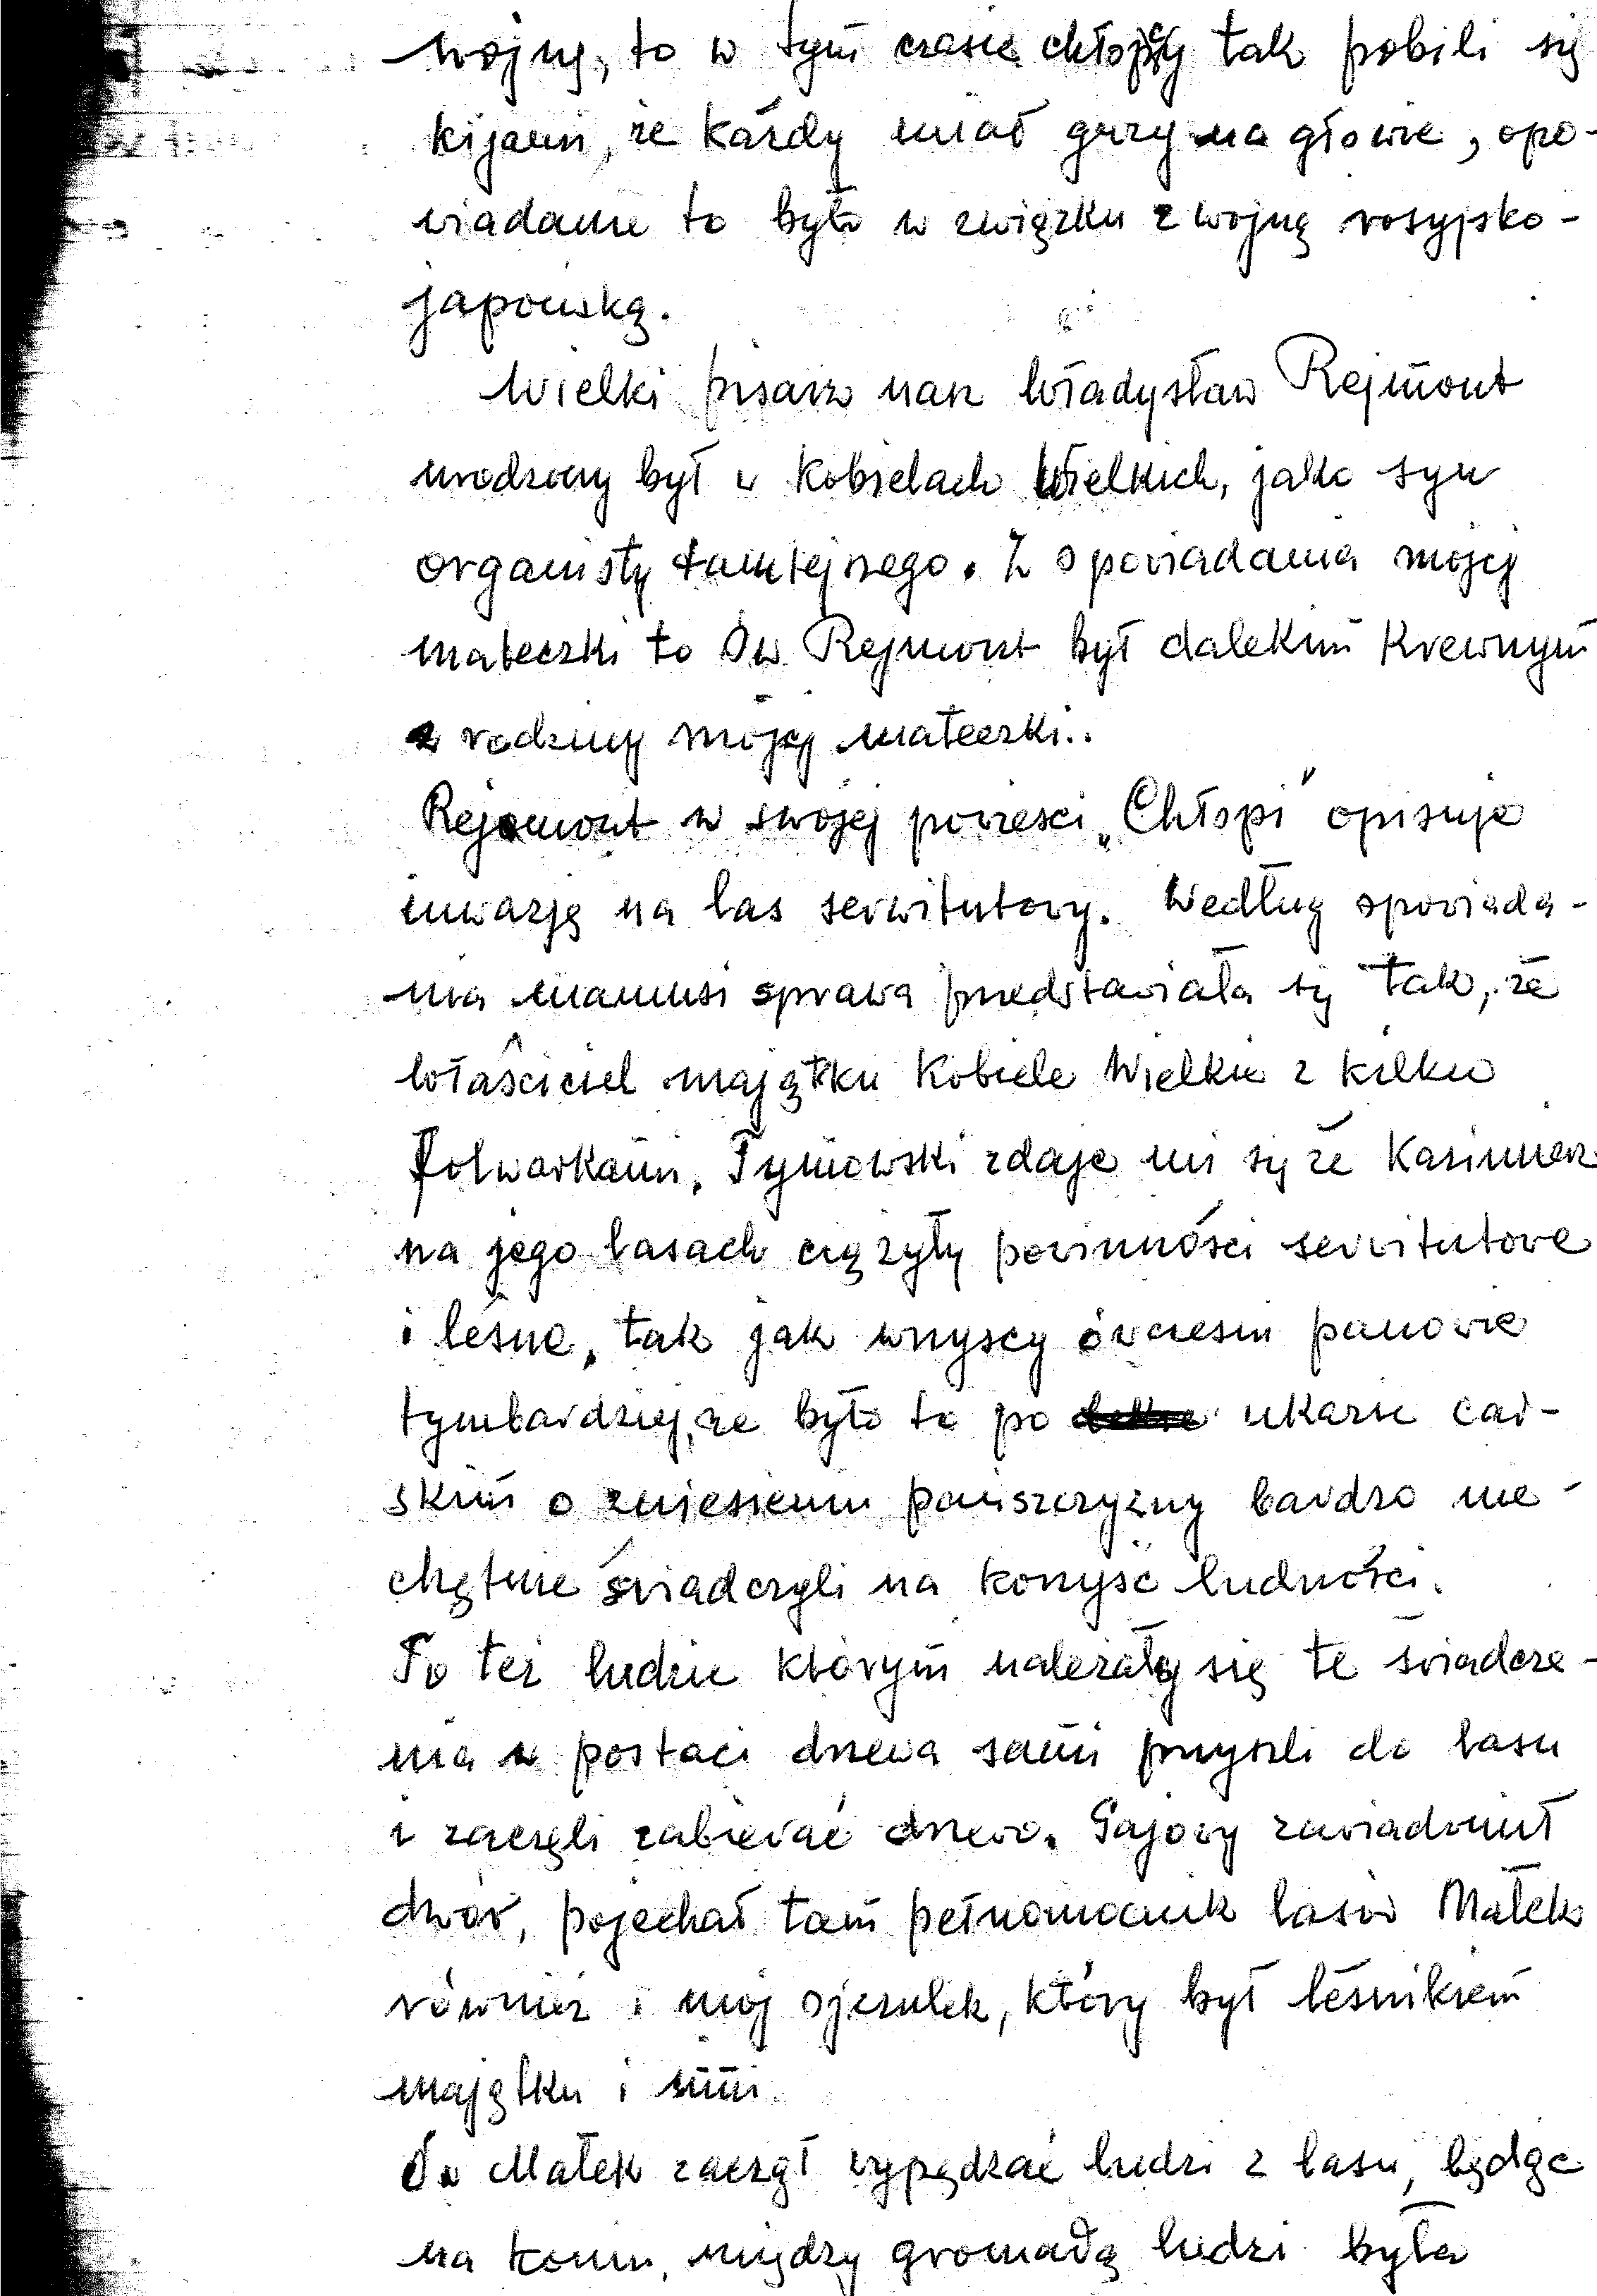 wojny, to w tym czasie chłopcy tak pobili się
kijami, że każdy miał guzy na głowie, opo-
wiadanie to było w związku z wojną rosyjsko-
japońską.
Wielki pisarz nasz Władysław Rejmont
urodzony był w Kobielach Wielkich, jako syn
organisty tamtejszego. Z opowiadania mojej
mateczki to ów Rejmont był dalekim krewnym
z rodziny mojej mateczki..
Rejmont w swojej powieści „Chłopi" opisuje
inwazję na las serwitutowy. Według opowiada-
nia mamusi sprawa przedstawiała się tak, że
właściciel majątku Kobiele Wielkie z kilku
folwarkami, Tymowski zdaje mi się że Kazimierz
na jego lasach ciążyły powinności serwitutowe
i leśne, tak jak wszyscy ówcześni panowie
tymbardziej, że było to po ukazie car-
skim o zniesieniu pańszczyzny bardzo nie-
chętnie świadczyli na korzyść ludności.
To też ludzie którym należały się te świadcze-
nia w postaci drzewa sami przyszli do lasu
i zaczęli zabierać drzewo. Gajowy zawiadomił
dwór, pojechał tam pełnomocnik lasów Małek
również i mój ojczulek, który był leśnikiem
majątku i inni.
Ów Małek zaczął wypędzać ludzi z lasu, będąc
na koniu, między gromadą ludzi była